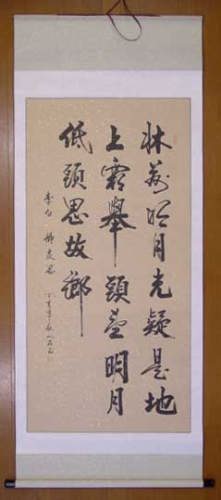 牀前明月光疑是地
上霜舉頭望明月
低頭思故鄉
李白 靜夜思
丁亥年